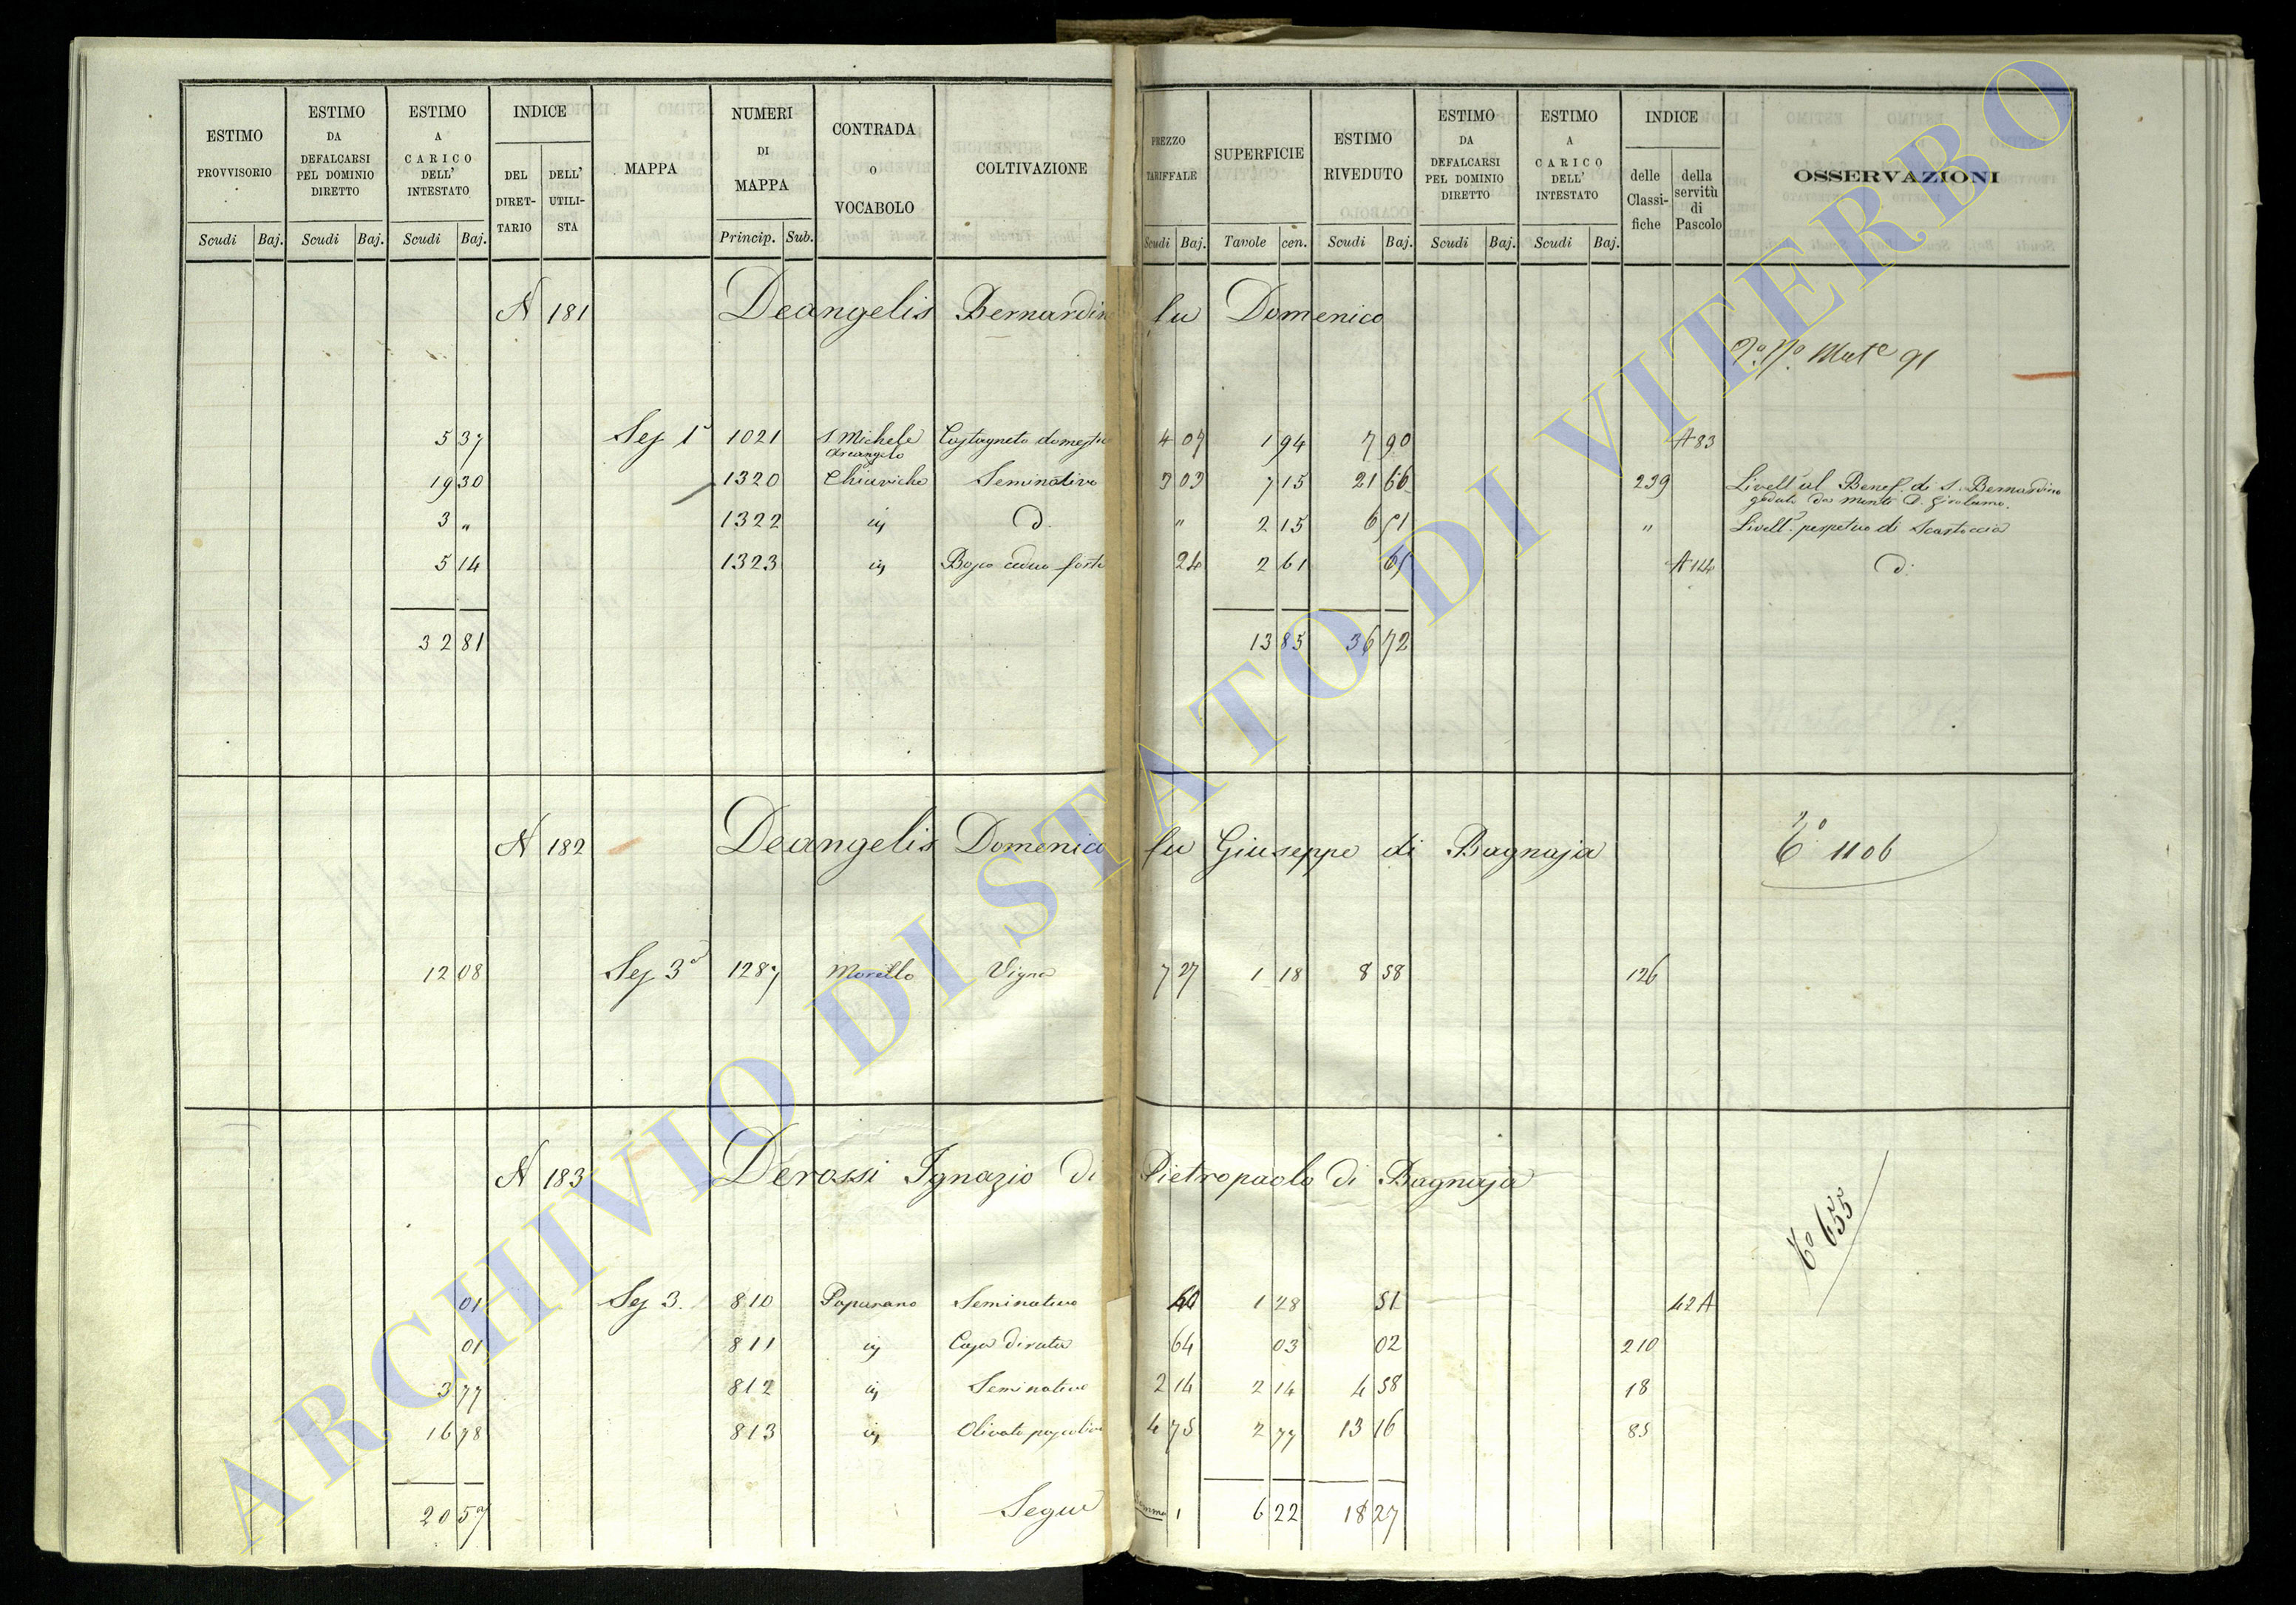 ESTIMO PROVVISORIO Scudi Baj.
ESTIMO DA DEFALCARSI PEL DOMINIO DIRETTO Scudi Baj.
ESTIMO A CARICO DELL' INTESTATO Scudi Baj.
INDICE DEL DIRET- TARIO DELL' UTILI- STA
MAPPA
NUMERI DI MAPPA Princip. Sub.
CONTRADA o VOCABOLO
COLTIVAZIONE
PREZZO TARIFFALE Scudi Baj.
SUPERFICIE Tavole cen.
ESTIMO RIVEDUTO Scudi Baj.
ESTIMO DA DEFALCARSI PEL DOMINIO DIRETTO Scudi Baj.
ESTIMO A CARICO DELL' INTESTATO Scudi Baj.
INDICE delle Classi- fiche della servitù di Pascolo
OSSERVAZIONI
N 181 Deangelis Bernardin fu Domenico
91
5 37 Sez 1ª 1021 S. Michele Arcangelo Castagneto domestic 4 07 1 94 7 90 A 83
19 30 1320 Chiaviche Seminativo 3 03 7 15 21 66 239 Livell. al Benef. di S. Bernardino
goduto da Monti D. Girolamo.
3 " 1322 iv D. " 2 15 6 51 " Livell. perpetuo di Scastoccia
5 14 1323 iv Bosco ceduo forte 24 2 61 65 A 114 D.
32 81 13 85 36 72
N 182 Deangelis Domenico fu Giuseppe di Bagnaja
1106
12 08 Sez 3ª 1287 Morello Vigna 7 27 1 18 8 58 126
N 183 Derossi Ignazio di Pietropaolo di Bagnaja
655
01 Sez 3. 810 Papurano Seminativo 40 1 28 51 42 A
01 811 iv Casa diruta 64 03 02 210
3 77 812 iv Seminativo 2 14 2 14 4 58 18
16 78 813 iv Olivato pascolivo 4 75 2 77 13 16 85
20 57 Segue Somma 1 6 22 18 27
ARCHIVIO DI STATO DI VITERBO